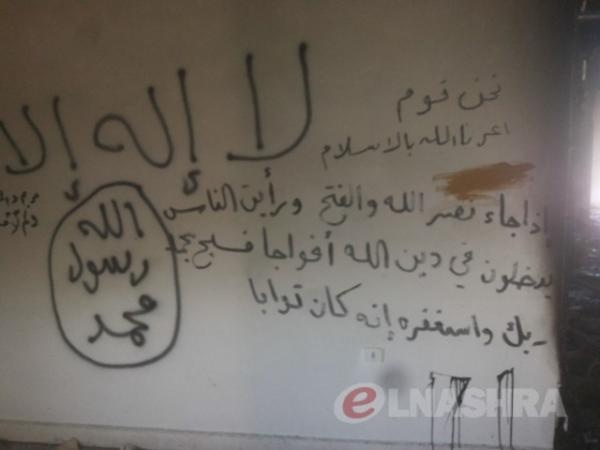 لا إله إلا
نحن قوم
اعزنا الله بالاسلام
إذا جاء نصر الله والفتح ورأيت الناس
يدخلون في دين الله أفواجا فسبح بحمد
ربك واستغفره إنه كان توابا
الله
رسول
محمد
eLNASHRA